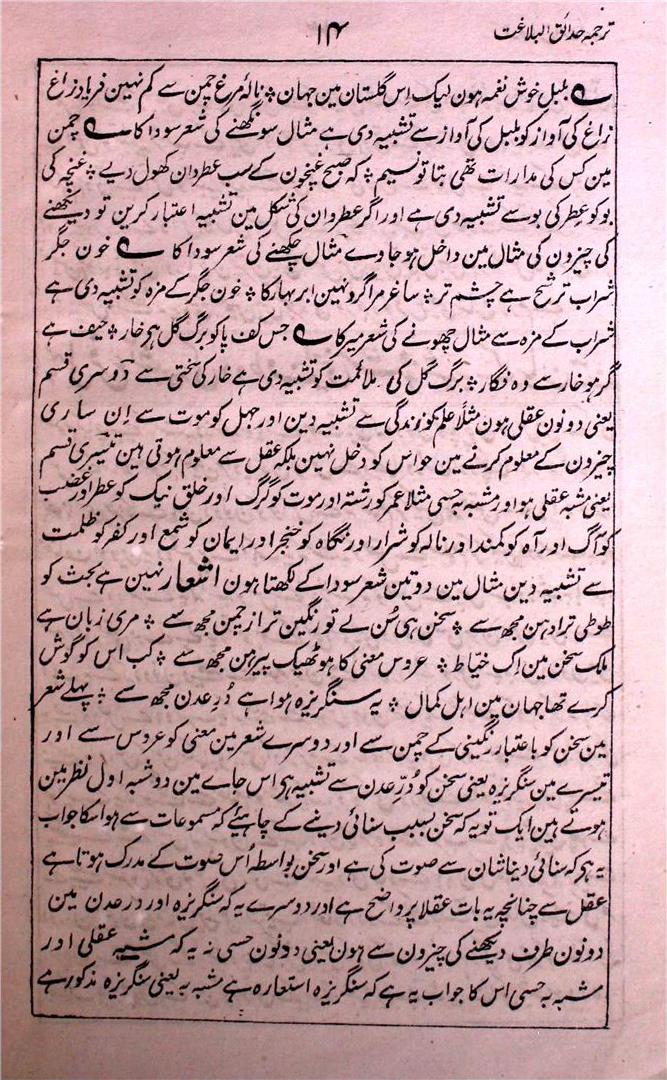 ترجمہ حدائق البلاغت
۱۴
؎ بلبل خوش نغمہ ہون لیک اِس گلستان مین جہان ٭ نالۂ مرغ چمن سے کم نہین فریاد زاغ
زاغ کی آواز کو بلبل کی آواز سے تشبیہ دی ہے مثال سونگھنے کی شعر سودا کا ؎ چمن
مین کس کی مدارات تھی بتا تو نسیم ٭ کہ صبح غنچون کے سب عطردان کھول دیے ٭ غنچہ کی
بو کو عطر کی بو سے تشبیہ دی ہے اور اگر عطردان کی شکل مین تشبیہ اعتبار کرین تو دیکھنے
کی چیزون کی مثال مین داخل ہو جاوے مثال چکھنے کی شعر سودا کا ؎ خون جگر
شراب ترشح ہے چشم تر ٭ ساغر مرا گرو نہین ابر بہار کا ٭ خون جگر کے مزہ کو تشبیہ دی ہے
شراب کے مزہ سے مثال چھونے کی شعر میر کا ؎ جس کف پا کو برگ گل ہو خار ٭ حیف ہے
گر ہو خار سے وہ فگار ٭ برگ گل کی ملائمت کو تشبیہ دی ہے خار کی سختی سے دوسری قسم
یعنی دونون عقلی ہون مثلاً علم کو زندگی سے تشبیہ دین اور جہل کو موت سے اِن ساری
چیزون کے معلوم کرنے مین حواس کو دخل نہین بلکہ عقل سے معلوم ہوتی ہین تیسری قسم
یعنی مشبہ عقلی ہو اور مشبہ بہ حسی مثلاً عمر کو رشتہ اور موت کو گرگ اور خلق نیک کو عطر اور غضب
کو آگ اور آہ کو کمند اور نالہ کو شرار اور نگاہ کو خنجر اور ایمان کو شمع اور کفر کو ظلمت
سے تشبیہ دین مثال مین دو تین شعر سودا کے لکھتا ہون اشعار نہین ہے بحث کو
طوطی ترا دہن مجھ سے ٭ سخن ہی سُن لے تو رنگین تر از چمن مجھ سے ٭ مری زبان ہے
ملک سخن مین اِک خیاط ٭ عروس معنی کا ہو ٹھیک پیرہن مجھ سے ٭ کب اس کو گوش
کرے تھا جہان مین اہل کمال ٭ یہ سنگریزہ ہوا ہے دُرِ عدن مجھ سے ٭ پہلے شعر
مین سخن کو باعتبار رنگینی کے چمن سے اور دوسرے شعر مین معنی کو عروس سے اور
تیسرے مین سنگریزہ یعنی سخن کو دُرِّ عدن سے تشبیہ ہی اس جاے مین دو شبہ اول نظر مین
ہوتے ہین ایک تو یہ کہ سخن بسبب سنائی دینے کے چاہیئے کہ مسموعات سے ہو اسکا جواب
یہ ہی کہ سنائی دینا شان سے صوت کی ہے اور سخن بواسطہ اُس صوت کے مدرک ہوتا ہے
عقل سے چنانچہ یہ بات عقلا پر واضح ہے اور دوسرے یہ کہ سنگریزہ اور در عدن مین
دونون طرف دیکھنے کی چیزون سے ہون یعنی دونون حسی نہ یہ کہ مشبہ عقلی اور
مشبہ بہ حسی اس کا جواب یہ ہے کہ سنگریزہ استعارہ ہے مشبہ بہ یعنی سنگریزہ مذکور ہے